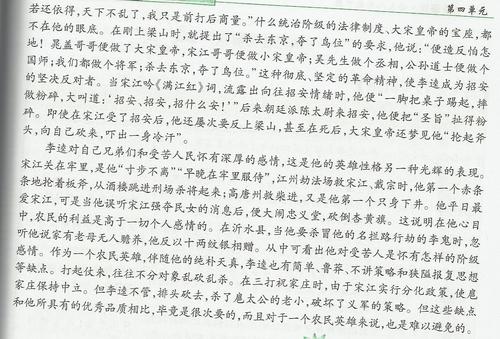 第四单元
若还依得，天下不乱了，我只是前打后商量。”什么统治阶级的法律制度、大宋皇帝的宝座，都
不在他的眼底。在刚上梁山时，就提出了“杀去东京，夺了鸟位”的要求，他说：“便造反怕怎
地！晁盖哥哥便做了大宋皇帝，宋江哥哥便做小宋皇帝；吴先生做个丞相，公孙道士便做个
国师；我们都做个将军；杀去东京，夺了鸟位。”这种彻底、坚定的革命精神，使李逵成为招安
的坚决反对者。当宋江吟《满江红》词，流露出向往招安情绪时，他便“一脚把桌子踢起，摔
做粉碎，大叫道：‘招安、招安，招什么安！’”后来朝廷派陈太尉来招安，他便把“圣旨”扯得粉
碎。即使在宋江受了招安后，他还屡次要反上梁山，甚至在死后，大宋皇帝还梦见他“抡起斧
头，向自己砍来，吓出一身冷汗”。
李逵对自己兄弟们和受苦人民怀有深厚的感情，这是他的英雄性格另一种光辉的表现。
宋江关在牢里，是他“寸步不离”“早晚在牢里服侍”，江州劫法场救宋江、戴宗时，他第一个赤条
条地抡着板斧，从酒楼跳进刑场杀将起来；高唐州救柴进，又是他第一个只身下井。他平日最
爱宋江，可是当他误听宋江强夺民女的消息后，便大闹忠义堂，砍倒杏黄旗。这说明在他心目
中，农民的利益是高于一切个人感情的。在沂水县，当他要杀冒他的名拦路行劫的李鬼时，忽
听他说家有老母无人赡养，他反以十两纹银相赠。从中可看出他对受苦人是怀有怎样的阶级
感情。作为一个农民英雄，伴随他的纯朴天真，李逵也有简单、鲁莽、不讲策略和狭隘报复思想
等缺点。打起仗来，往往不分对象乱砍乱杀。在三打祝家庄时，由于宋江实行分化政策，使扈
家庄保持中立。但李逵不管，排头砍去，杀了扈太公的老小，破坏了义军的策略。但这些缺点
和他所具有的优秀品质相比，毕竟是很次要的，而且对于一个农民英雄来说，也是难以避免的。